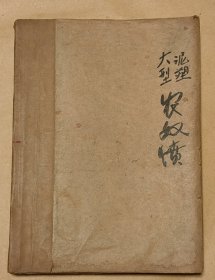 大型
泥塑
农奴愤